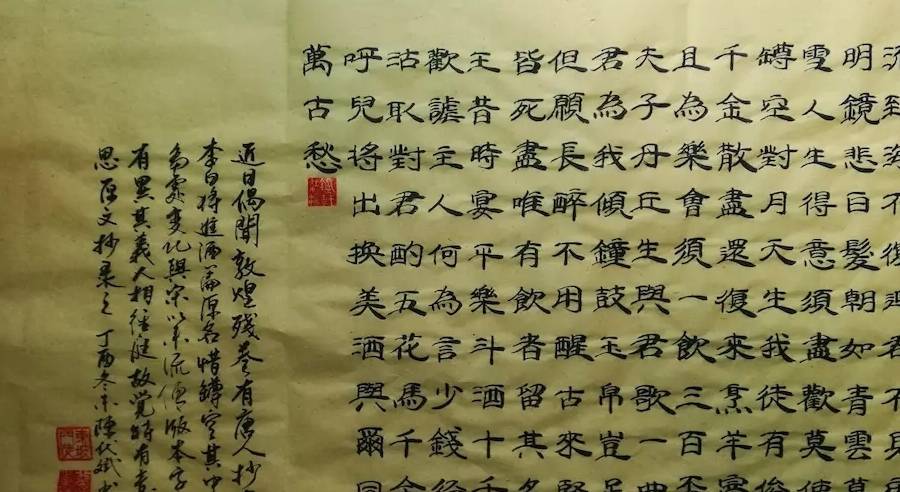 流到海不復迴君不
明鏡悲白髮朝如青雲
雪人生得意須盡歡莫使
罇空對月天生我徒有俊
千金散盡還復來烹羊宰
且為樂會須一飲三百
夫子丹丘生與君歌一曲
君為我傾鐘鼓玉帛豈足
但願長醉不用醒古來賢
皆死盡唯有飲者留其名
王昔時宴平樂斗酒十千
歡謔主人何為言少錢徑
沽取對君酌五花馬千金
呼兒將出換美酒與爾同
萬古愁
近日偶聞敦煌殘卷有唐人抄
李白將進酒篇原名惜罇空其中
多處變化與宋以來流傳版本字
有異其義大相徑庭故覺時有意
思原文抄录之 丁酉冬末陳代斌书